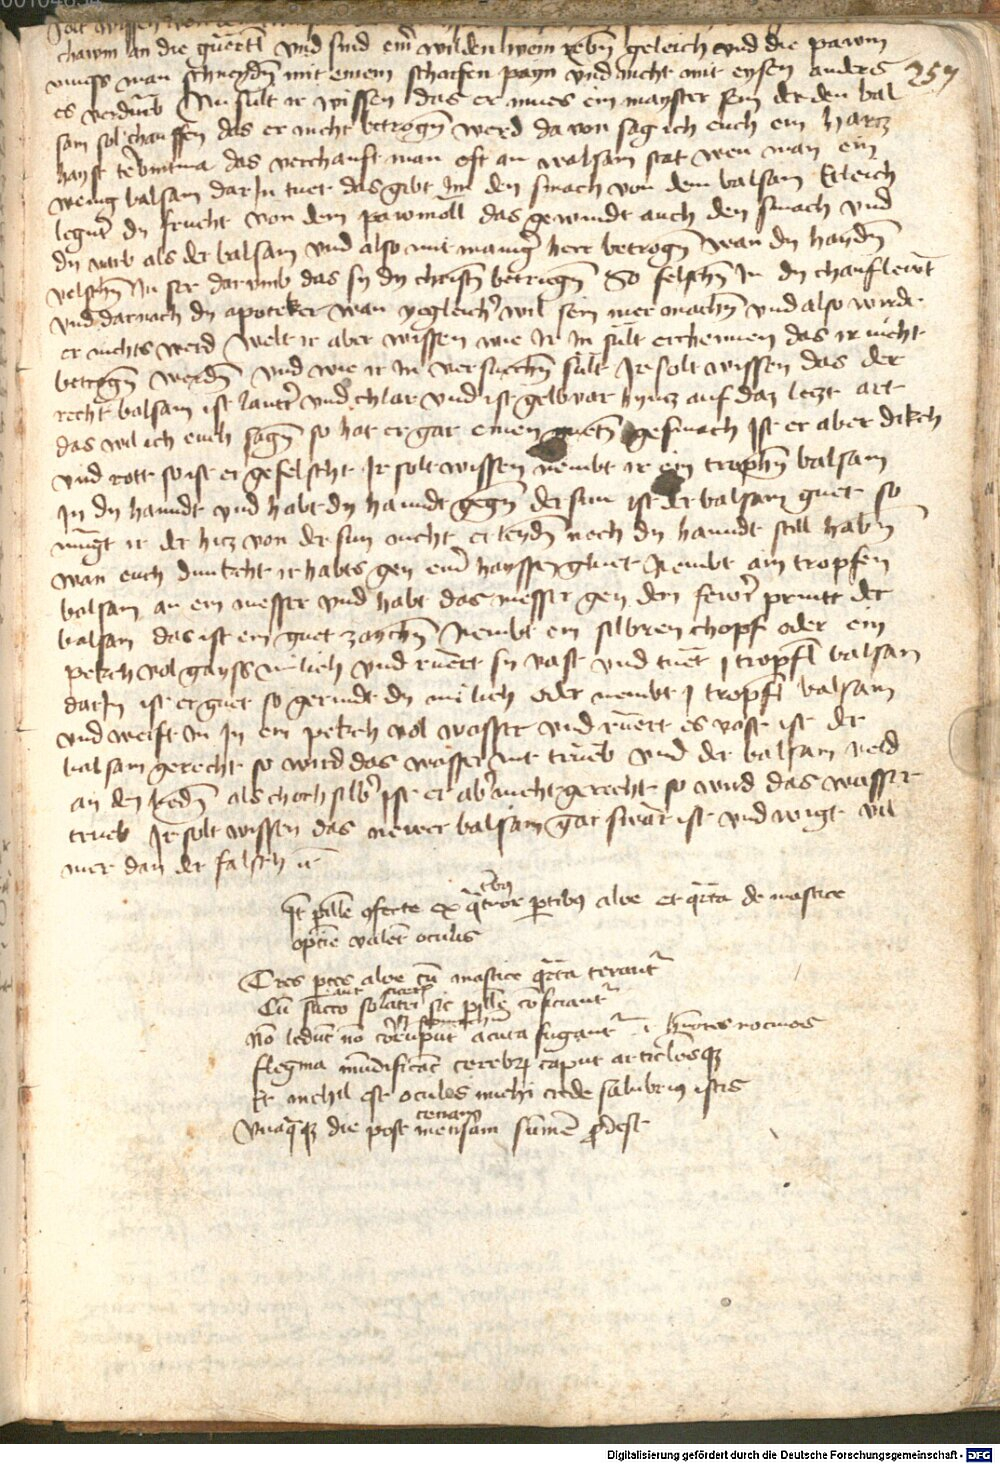 solt wissen von
chawm an die guertl vnd sind eim wilden wein rebn geleich vnd die pawm
muess man schneydn mit einem scharfen payn vnd nicht mit eysen anders
257
es verdurb Nu sult ir wissen das er mues ein mayster sein der den bal
sam sol chauffen das er nicht betrogn werd da von sag ich euch ein harcz
hayst terbintina das verchauft man oft an walsam stat wen man ein
wenig balsam darJn tuet das gibt Jm den smach von dem balsam Etleich
legnt dy frucht von dem pawmoll das gewindt auch den smach vnd
dy varb als der balsam vnd also wirt maniger herr betrogn wan dy haydn
velschn Jn ser darvmb das sy dy christn betriegn So felschn Jn dy chauflewt
vnd darnach dy apoteker wan yegleicher wil sein mer machn vnd also wirdt
er nichts werd Welt ir aber wissen wie Ir Jn sult erchennen das ir nicht
betrogn werdn vnd wie ir Jn versuechn sult Ir solt wissen das der
recht balsam ist lautter vnd chlar vnd ist gelbvar hyncz auf daz leczt art
das wil ich euch sagn so hat er gar einen guetn gesmach Ist er aber dikch
vnd rott so ist er gefelscht Ir solt wissen nembt ir ein trophn balsam
Jn dy hanndt vnd habt dy hanndt gegn der sun ist der balsam guet so
mugt ir der hicz von der sun nicht erleydn noch dy hanndt still habn
wan euch dunkcht ir habts gen eim hayssen gluet Nembt ain tropfen
balsam an ein messer vnd habt das messer gen dem fewr prinnt der
balsam das ist ein guet zaychn Nembt ein silbren chopf oder ein
pekch vol gayss milich vnd ruert sy vast vnd tuet j tropfl balsam
darJn ist er guet so gerindt dy milich oder nembt j tropfl balsam
vnd werft in Jn ein pekch vol wasser vnd ruert es vast ist der
balsam gerecht so wird das wasser nit trueb vnd der balsam veld
an den bodn als chochsilber Ist er aber nicht gerecht so wird das wasser
trueb Ir solt wissen das newer balsam gar swar ist vnd wigt vil
mer dan der falsch ist
tbus
Jt pille confecte ex quatuor partibus aloe et quarta de mastice
optime valent oculis
Tres partes aloe cum mastice quarta terantur
Cum succo solatri sic pille conficiantur
Non ledunt non corrumpunt acuta fugantur i humores nociuos
flegma mundificant cerebrum caput articulosque
Et nichil est oculis michi crede salubrius istis
cenam
Vnaqueque die post mensam sumere prodest